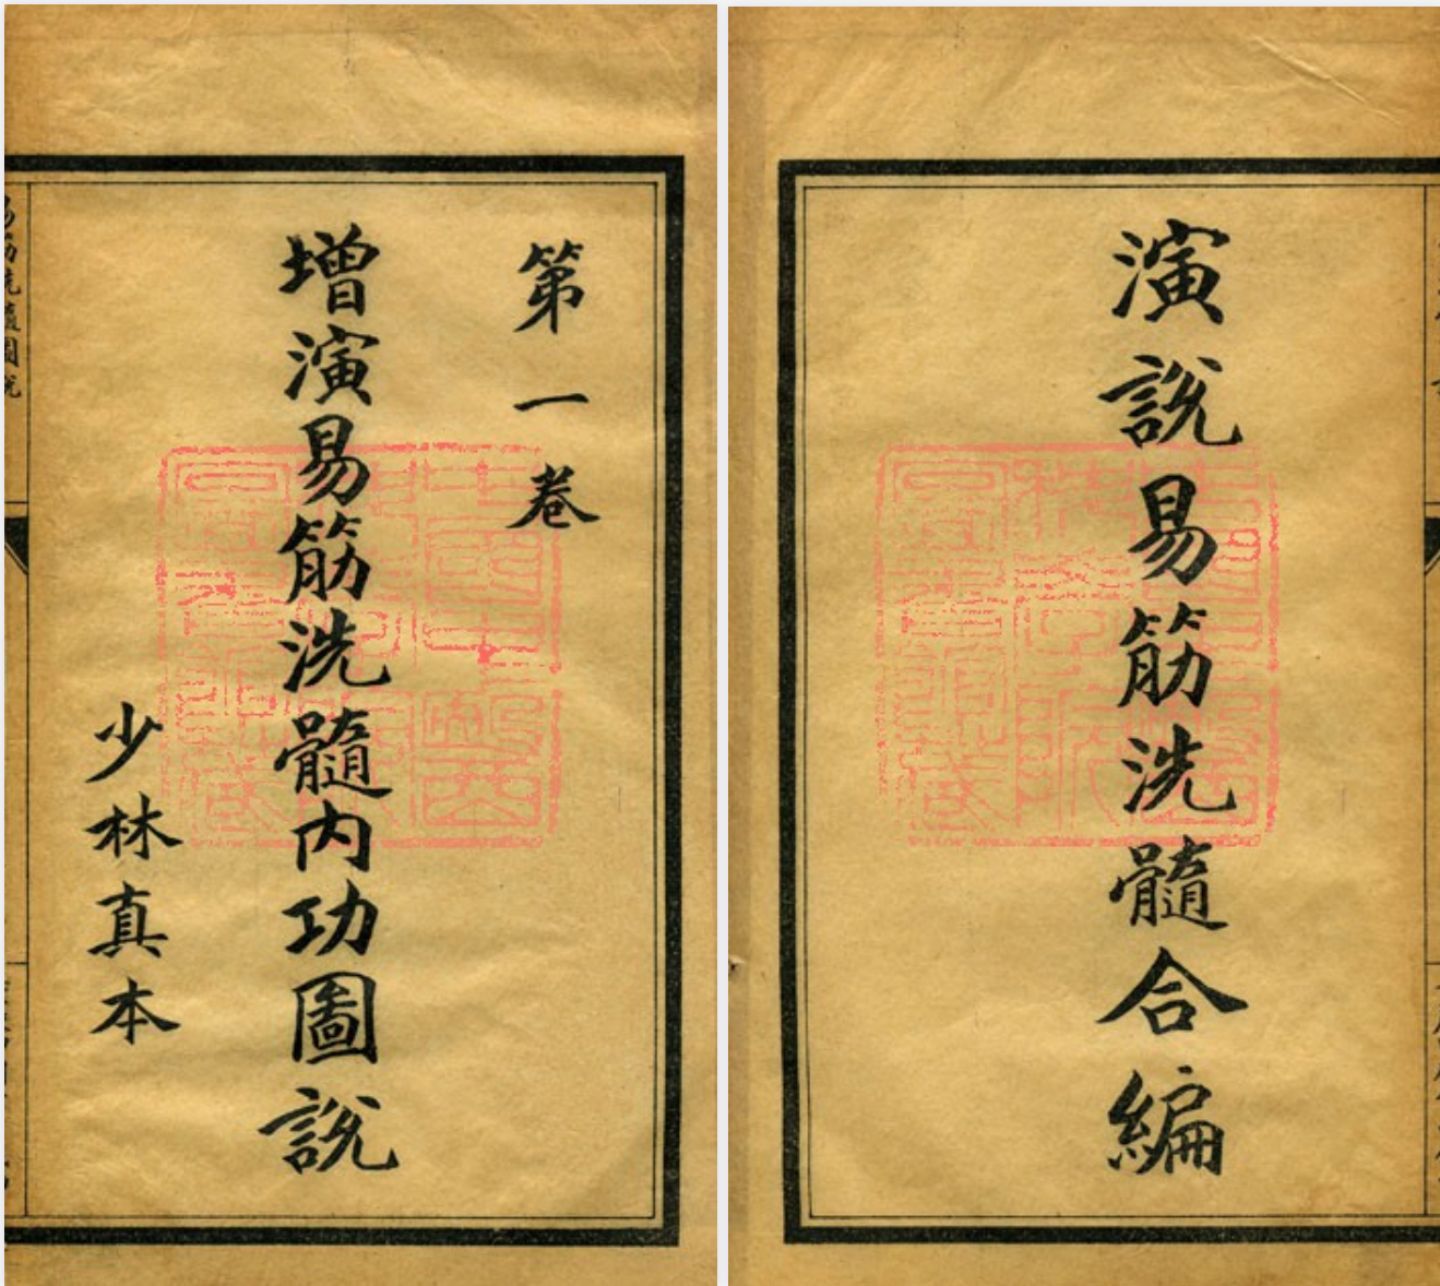 演說易筋洗髓合編
第一卷
增演易筋洗髓內功圖說
少林真本